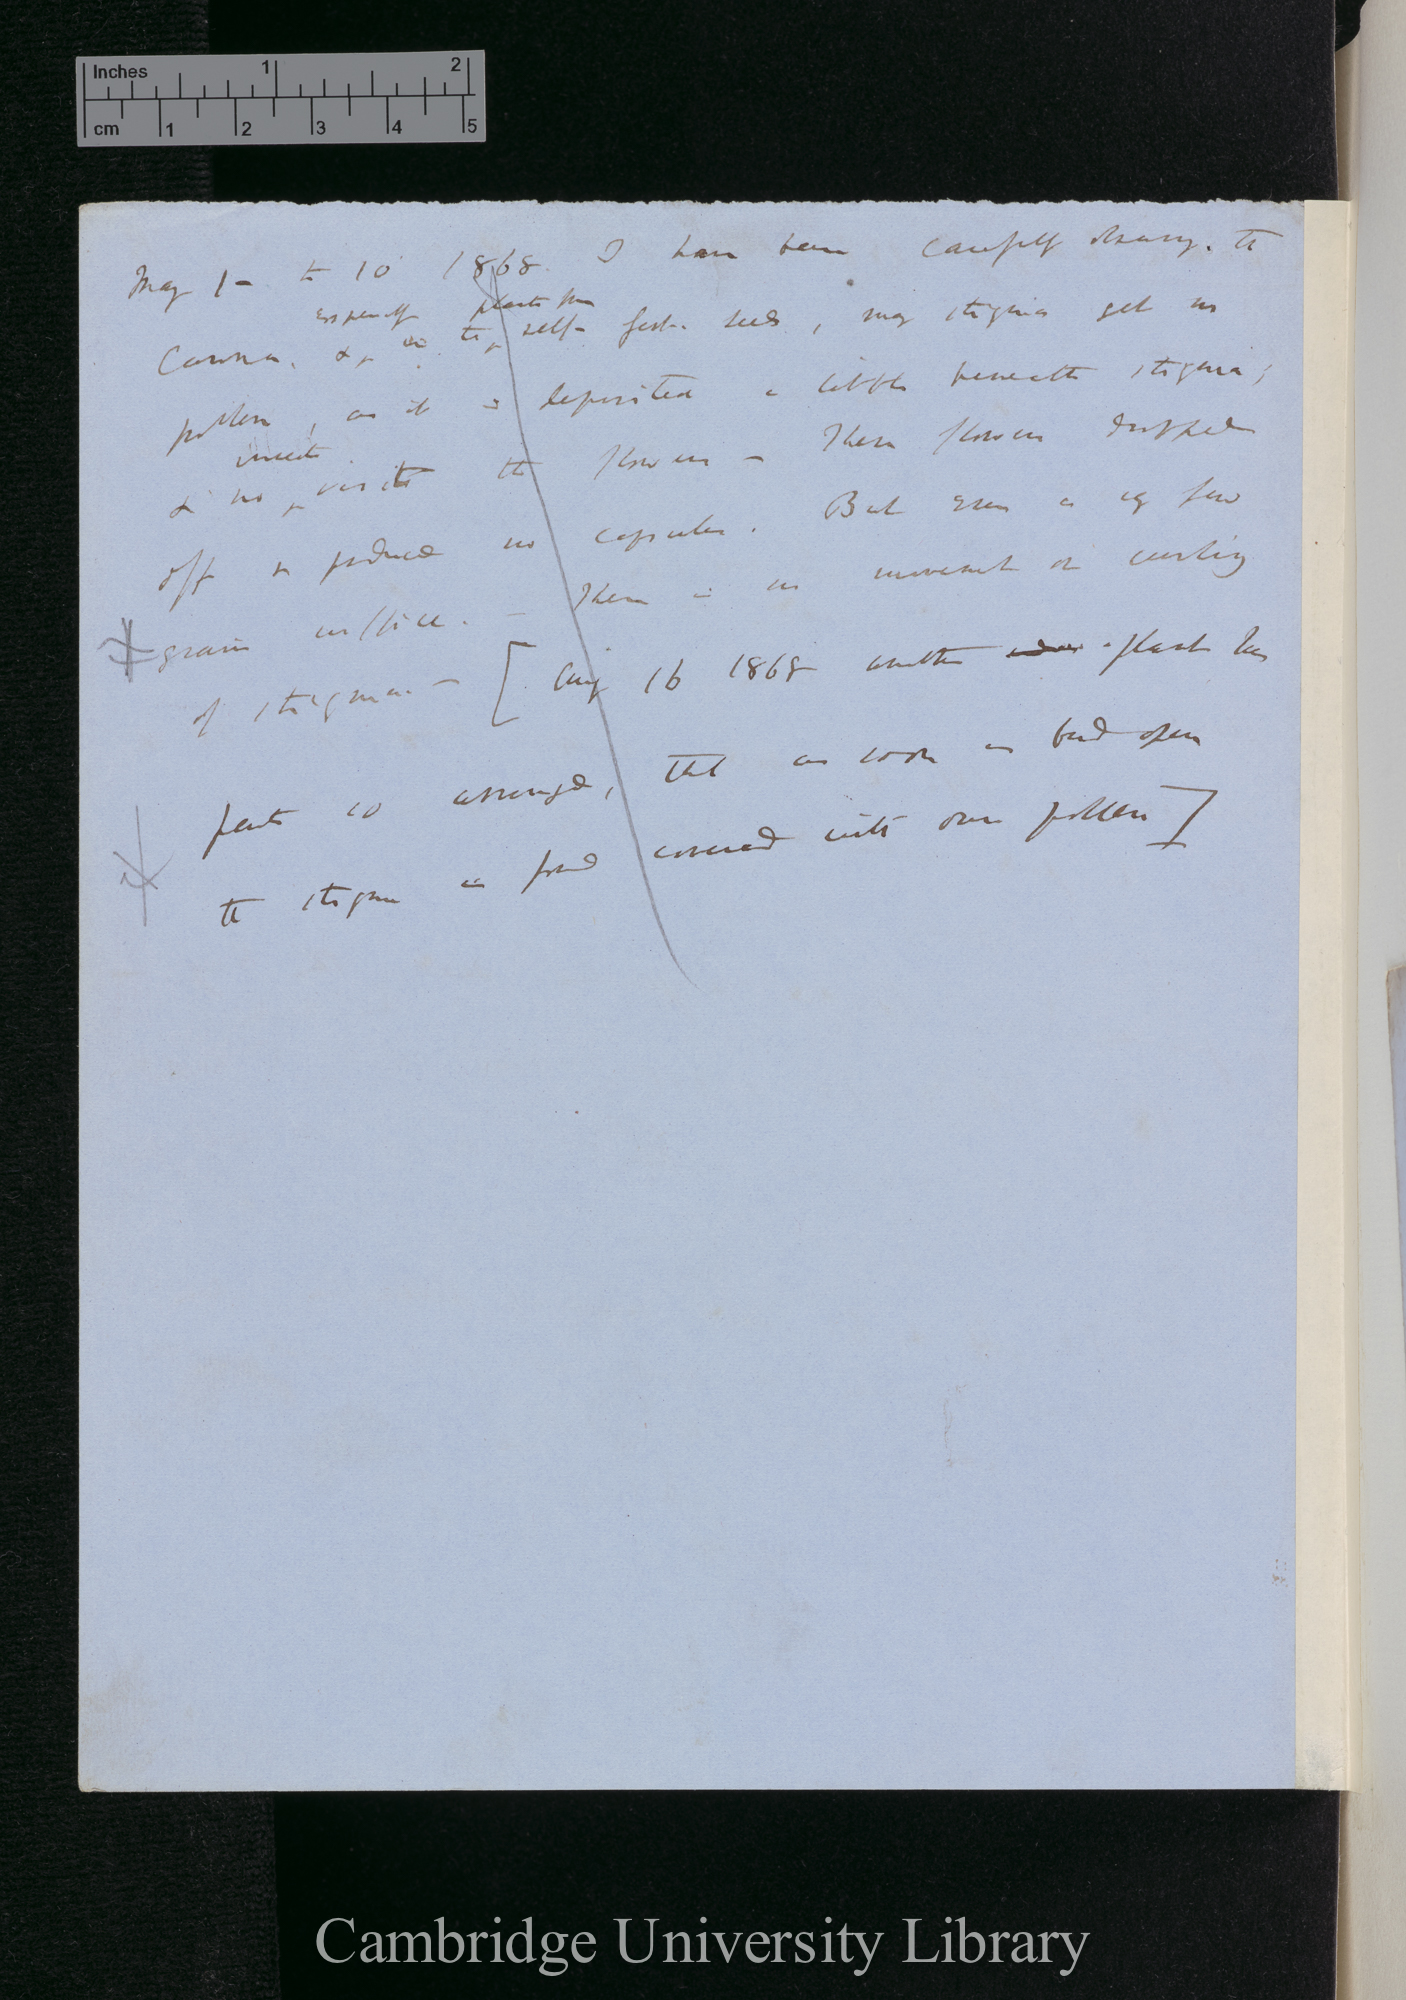 Inches 1 2
cm 1 2 3 4 5
May 1 – to 10 1868. I have been carefully observing. the
especially plants from
Canna. & in the self- fert. seeds, many stigmas get no
pollen, as it is deposited a little beneath stigma;
insects
& no visits the flowers – These flowers dropped
off & produced no capsules. But even a very few
grains suffice. – There is no movement or curling
of stigma. – [Aug 16 1868 another plant has
parts so arranged, that as soon as bud open
the stigma is found covered with own pollen]
Cambridge University Library